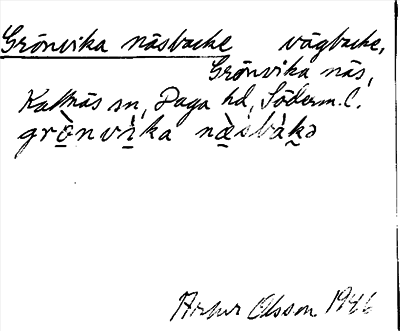 Grönvika näsbacke vägbacke,
Grönvika näs,
Kattnäs sn, Daga hd, Söderm. l.
grö̀nvìka næ̀sbàkə
Artur Olsson 1946